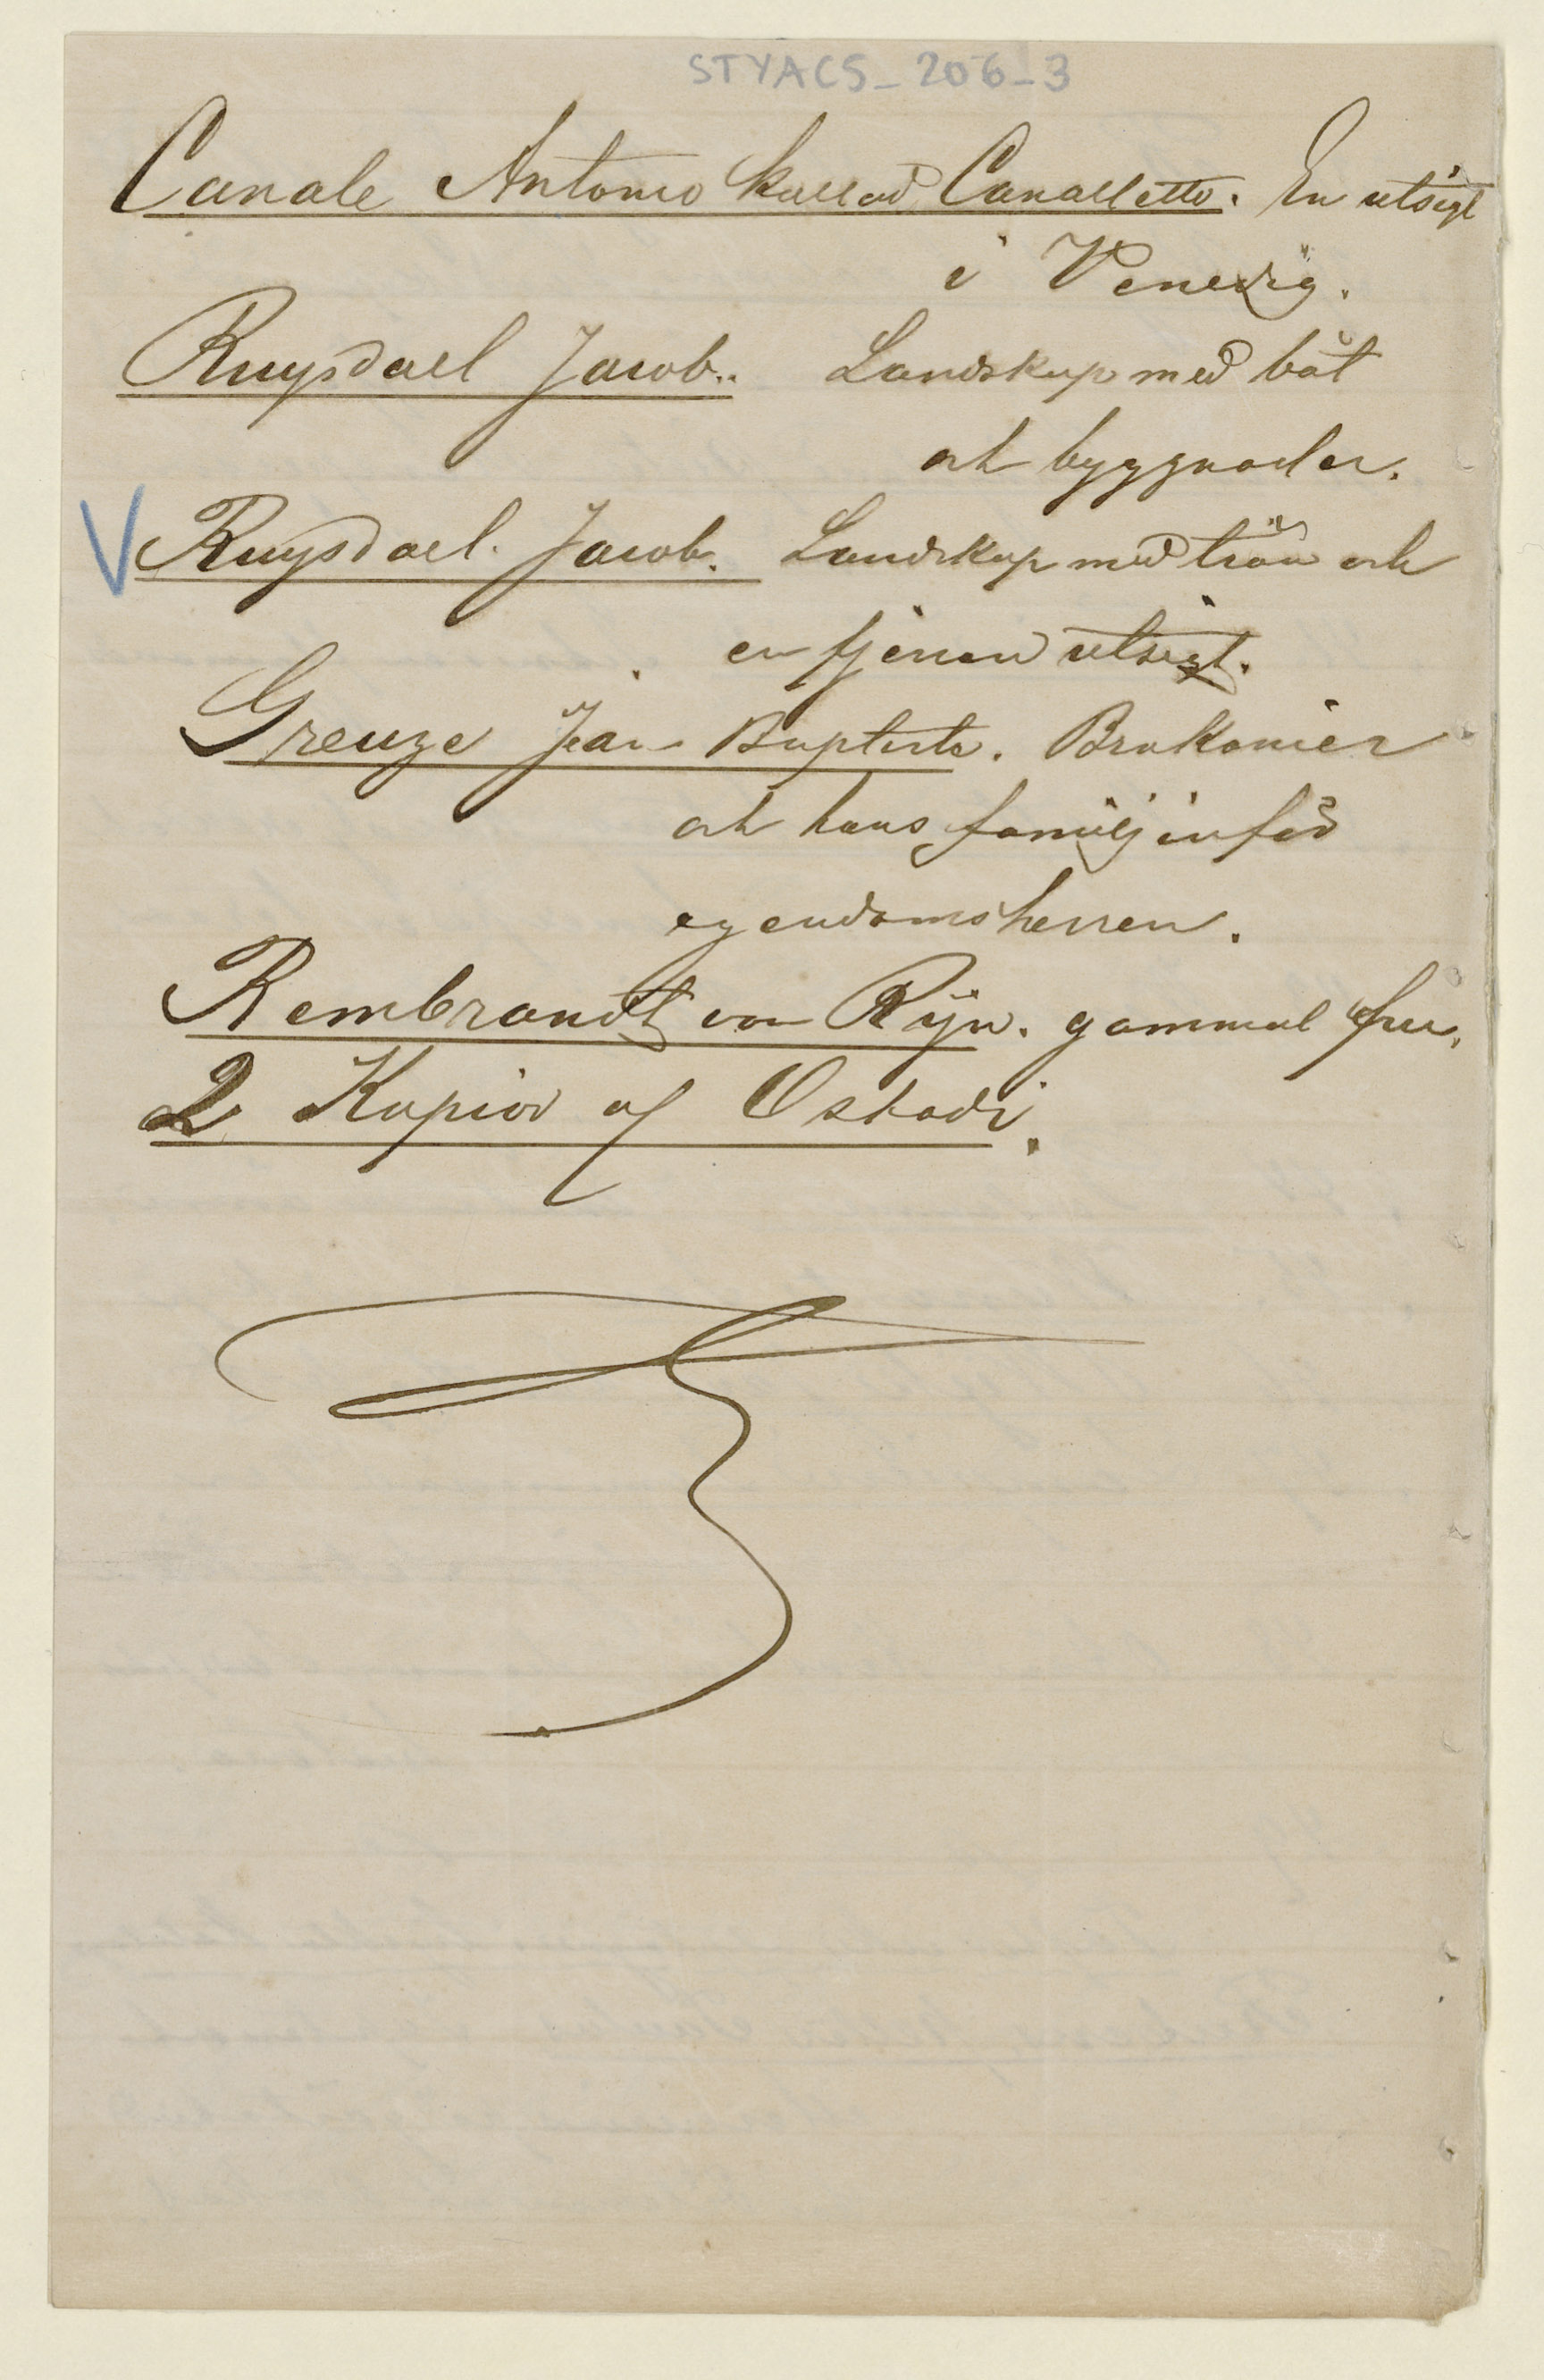 STYACS_206_3
Canale Antonio kallad Canalletto. En utsigt
i Venedig.
Ruysdael Jacob.. Landskap med båt
och byggnader.
V Ruysdael. Jacob. Landskap med trän och
en fjerran utsigt.
Greuze Jean Baptiste. Brukanier
och hans familj inför
egendomsherren.
Rembrandt van Rijn. gammal fru.
2 Kopior af Ostade.